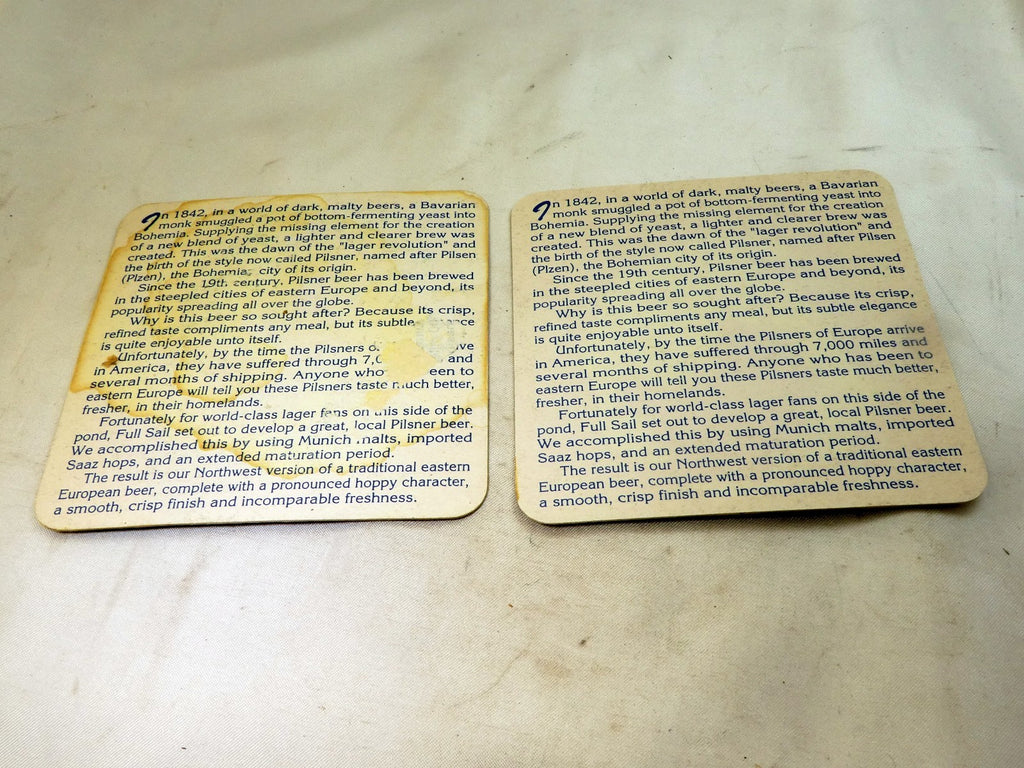 In 1842, in a world of dark, malty beers, a Bavarian
monk smuggled a pot of bottom-fermenting yeast into
Bohemia. Supplying the missing element for the creation
of a new blend of yeast, a lighter and clearer brew was
created. This was the dawn of the "lager revolution" and
the birth of the style now called Pilsner, named after Pilsen
(Plzen), the Bohemian city of its origin.
Since the 19th century, Pilsner beer has been brewed
in the steepled cities of eastern Europe and beyond, its
popularity spreading all over the globe.
Why is this beer so sought after? Because its crisp,
refined taste compliments any meal, but its subtle
is quite enjoyable unto itself.
Unfortunately, by the time the Pilsners
in America, they have suffered through and
several months of shipping. Anyone who to
eastern Europe will tell you these Pilsners taste much better,
fresher, in their homelands.
Fortunately for world-class lager fans on this side of the
pond, Full Sail set out to develop a great, local Pilsner beer.
We accomplished this by using Munich malts, imported
Saaz hops, and an extended maturation period.
The result is our Northwest version of a traditional eastern
European beer, complete with a pronounced hoppy character,
a smooth, crisp finish and incomparable freshness.
In 1842, in a world of dark, malty beers, a Bavarian
monk smuggled a pot of bottom-fermenting yeast into
Bohemia. Supplying the missing element for the creation
of a new blend of yeast, a lighter and clearer brew was
created. This was the dawn of the "lager revolution" and
the birth of the style now called Pilsner, named after Pilsen
(Plzen), the Bohemian city of its origin.
Since the 19th century, Pilsner beer has been brewed
in the steepled cities of eastern Europe and beyond, its
popularity spreading all over the globe.
Why is this beer so sought after? Because its crisp,
refined taste compliments any meal, but its subtle elegance
is quite enjoyable unto itself.
Unfortunately, by the time the Pilsners of Europe arrive
in America, they have suffered through 7,000 miles and
several months of shipping. Anyone who has been to
eastern Europe will tell you these Pilsners taste much better,
fresher, in their homelands.
Fortunately for world-class lager fans on this side of the
pond, Full Sail set out to develop a great, local Pilsner beer.
We accomplished this by using Munich malts, imported
Saaz hops, and an extended maturation period.
The result is our Northwest version of a traditional eastern
European beer, complete with a pronounced hoppy character,
a smooth, crisp finish and incomparable freshness.